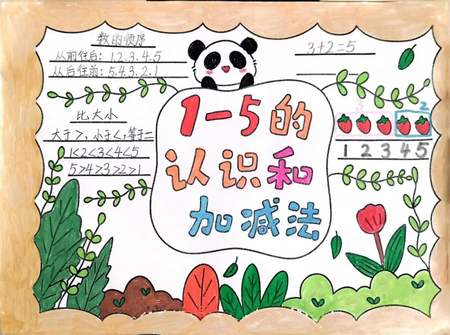 数的顺序
从前往后:1.2.3.4.5
从后往前:5.4.3.2.1
比大小
大于>,小于<,等于=
1<2<3<4<5
5>4>3>2>1
1-5的
认识和
加减法
3+2=5
3 2
1 2 3 4 5